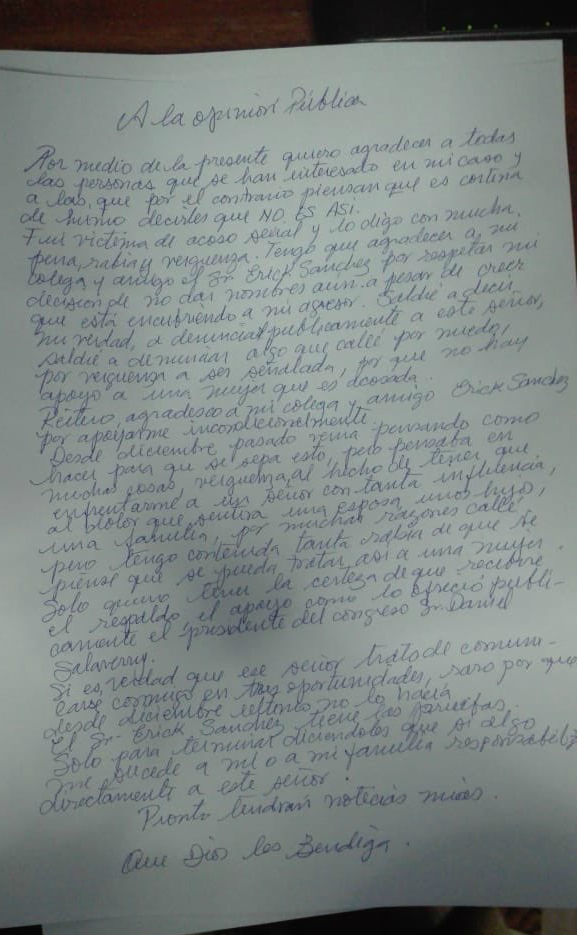 A la opinión Pública
Por medio de la presente quiero agradecer a todas
las personas que se han interesado en mi caso y
a las, que por el contrario piensan que es cortina
de humo decirles que NO ES ASI.
Fui victima de acoso sexual y lo digo con mucha,
pena, rabia y verguenza. Tengo que agradecer a mi
colega y amigo el Sr. Erick Sanchez por respetar mi
decisión de no dar nombres aun a pesar de creer
que está encubriendo a mi agresor. Saldré a decir
mi verdad, a denunciar publicamente a este señor,
saldré a denunciar algo que callé por miedo,
por verguenza a ser señalada, por que no hay
apoyo a una mujer que es acosada.
Reitero, agradesco a mi colega y amigo Erick Sanchez
por apoyarme incondicionalmente.
Desde diciembre pasado venia pensando como
hacer para que se sepa esto, pero pensaba en
muchas cosas, verguenza, al hecho de tener que
enfrentarme a un señor con tanta influencia,
al dolor que sentiria una esposa, unos hijos,
una familia, por muchas razones callé,
pero tengo contenida tanta rabia de que se
piense que se pueda tratar asi a una mujer.
Solo quiero tener la certeza de que recibire
el respaldo, el apoyo como lo ofreció publi-
camente el presidente del congreso Sr. Daniel
Salaverry.
Si es verdad que ese señor trato de comuni-
carse conmigo en tres oportunidades, raro por que
desde diciembre no lo hacia
el Sr. Erick Sanchez tiene las pruebas.
Solo para terminar diciendoles que si algo
me sucede a mi o a mi familia responsabilizo
directamente a este señor.
Pronto tendran noticias mias.
Que Dios los Bendiga.